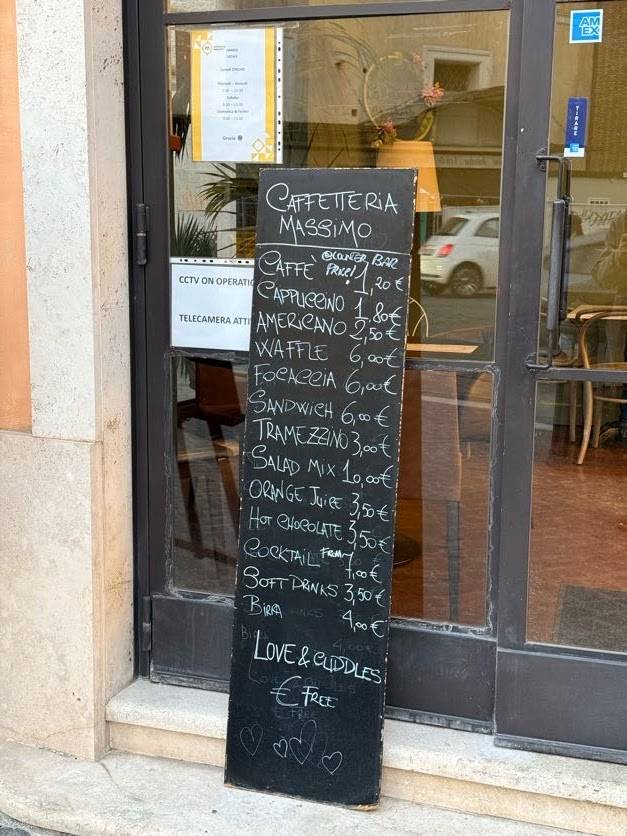 AM
EX
TIRARE
Grazie
CCTV ON OPERATIO
TELECAMERA ATTI
CAFFETTERIA
MASSIMO
@COUNTER BAR
PRICE!
CAFFE' 1,20 €
CAPPUCCINO 1,80 €
AMERICANO 2,50 €
WAFFLE 6,00 €
FOCACCIA 6,00 €
SANDWICH 6,00 €
TRAMEZZINO 3,00 €
SALAD MIX 10,00 €
ORANGE JUICE 3,50 €
HOT CHOCOLATE 3,50 €
COCKTAIL FROM 7,00 €
SOFT DRINKS 3,50 €
BIRRA 4,00 €
LOVE & CUDDLES
€ FREE